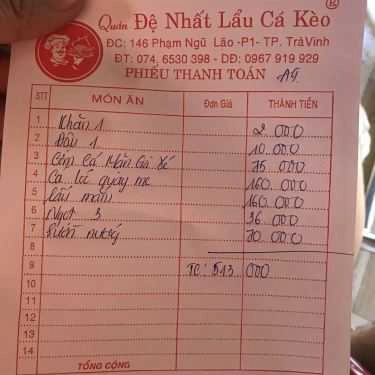 ®
Quán Đệ Nhất Lẩu Cá Kèo
ĐC: 146 Phạm Ngũ Lão -P1- TP. Trà Vinh
ĐT: 074, 6530 398 - DĐ: 0967 919 929
PHIẾU THANH TOÁN A9
STT MÓN ĂN Đơn Giá THÀNH TIỀN
1 Khăn 1 2.000
2 Đậu 1 10.000
3 Cơm Cá Mặn Gà Xé 75.000
4 Cá lóc quay me 160.000
5 Lẩu mắm 160.000
6 Ngọt 3 36.000
7 Sườn nướng 70.000
8
9 TC: 513.000
10
11
12
13
14
TỔNG CỘNG